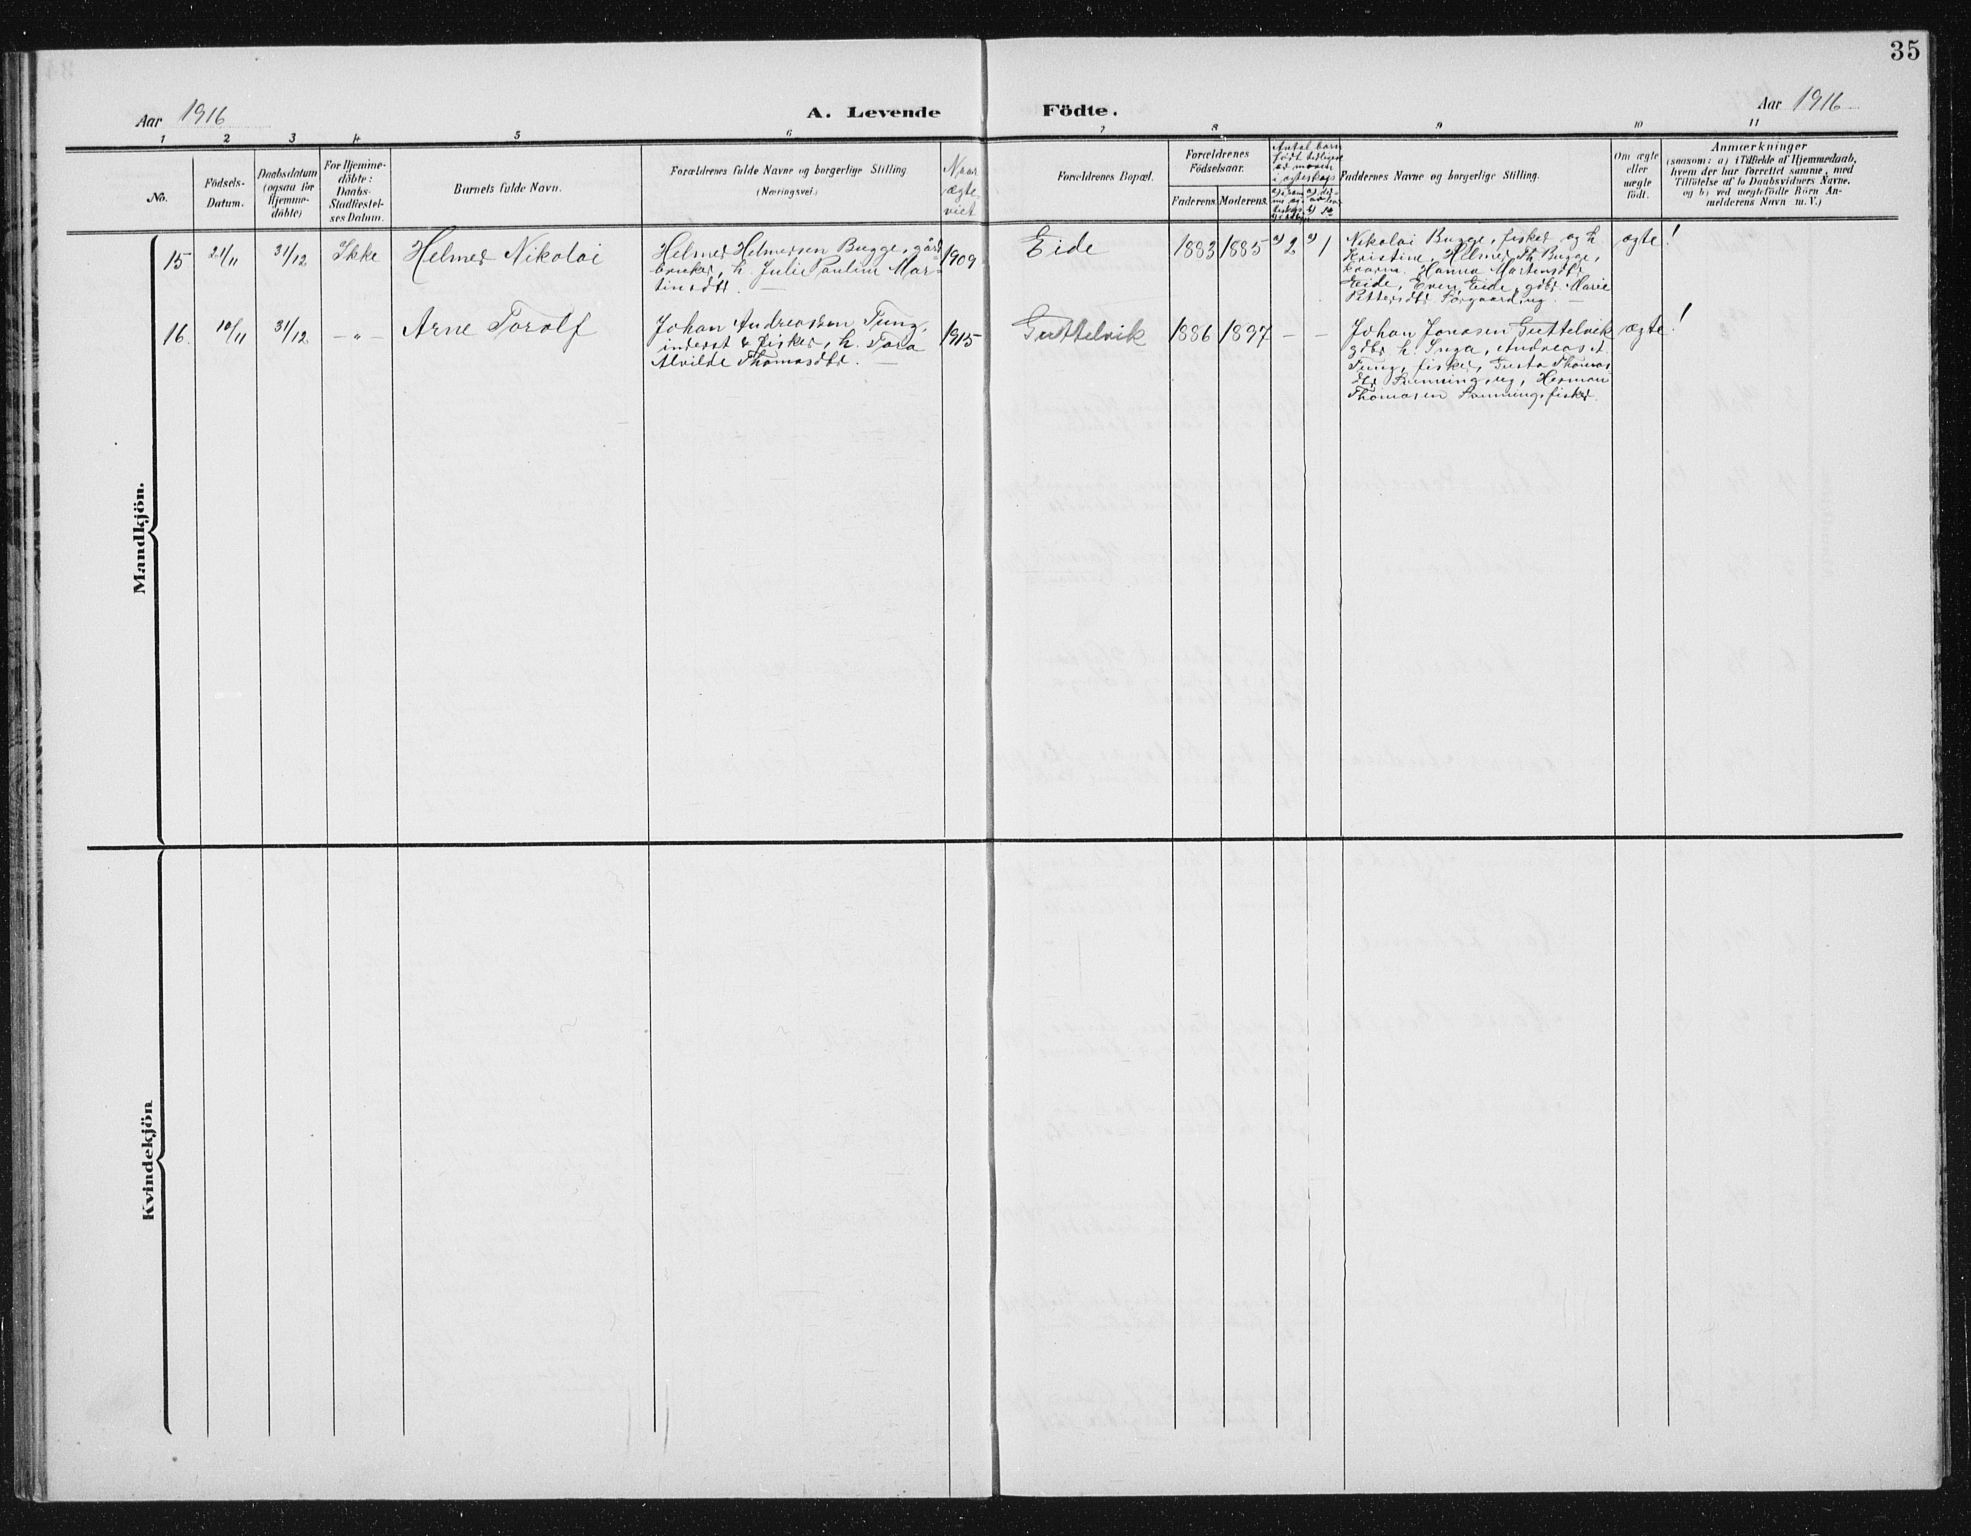 35
Aar 1916
A. Levende Födte.
Aar 1916
1 2 3 4 5 6 7 8 9 10 11
No.
Födsels-
Datum.
Daabsdatum
(ogsaa for
Hjemme-
döbte)
For Hjemme-
döbte:
Daabs-
Stadfæstel-
ses Datum.
Barnets fulde Navn.
Forældrenes fulde Navne og borgerlige Stilling
(Næringsvei.)
Naar
ægte-
viet
Forældrenes Bopæl.
Forældrenes
Födselsaar.
Faderens.
Moderens.
Antal barn
født tidligere
Faddernes Navne og borgerlige Stilling.
Om ægte
eller
uægte
födt.
Anmærkninger
(saasom: a) i Tilfælde af Hjemmedaab,
hvem der har forrettet samme, med
Tilföielse af to Daabsvidners Navne,
og b) ved uægtefödte Börn An-
melderens Navn m. V.)
Mandkjön.
15
21/11
31/12
Ikke
Helmer Nikolai
Helmer Helmersen Bugge, gård-
bruker, h. Julie Pauline Mar-
tinsdtr. —
1909
Eide
1883
1885
a) 2
a) 1
Nikolai Bugge, fisker og h.
Kristine, Helmer Th. Bugge,
Hanna Martinsdtr.
Eide, Even Eide, gdbr. Marie
Pettersdtr. ug. —
ægte
!
16.
10/11
31/12
— " —
Arne Torolf
Johan Andreassen Tung,
inderst & fisker, h. Tora
Alvilde Thomasdtr. —
1915
Guttelvik
1886
1897
—
—
Johan Jonasen Guttelvik
gdbr. h. Inga, Andreas A.
Tung, fisker, Gusta Thomas
dtr. ug, Herman
Thomasen fisker.
ægte
!
Kvindekjön